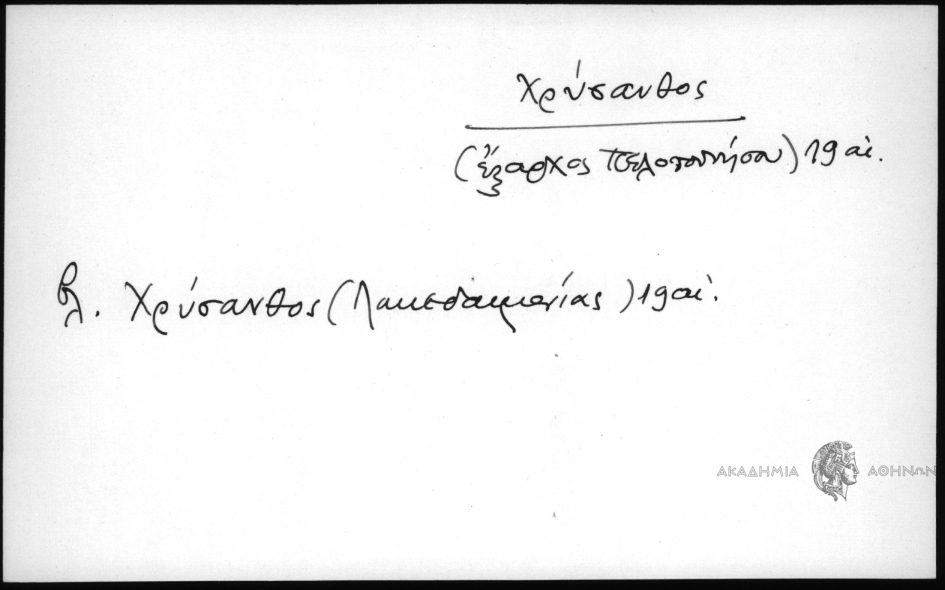 Χρύσανθος
(ἔξαρχος Πελοποννήσου) 19 αἰ.
βλ. Χρύσανθος (Λακεδαιμονίας) 19 αἰ.
ΑΚΑΔΗΜΙΑ ΑΘΗΝΩΝ